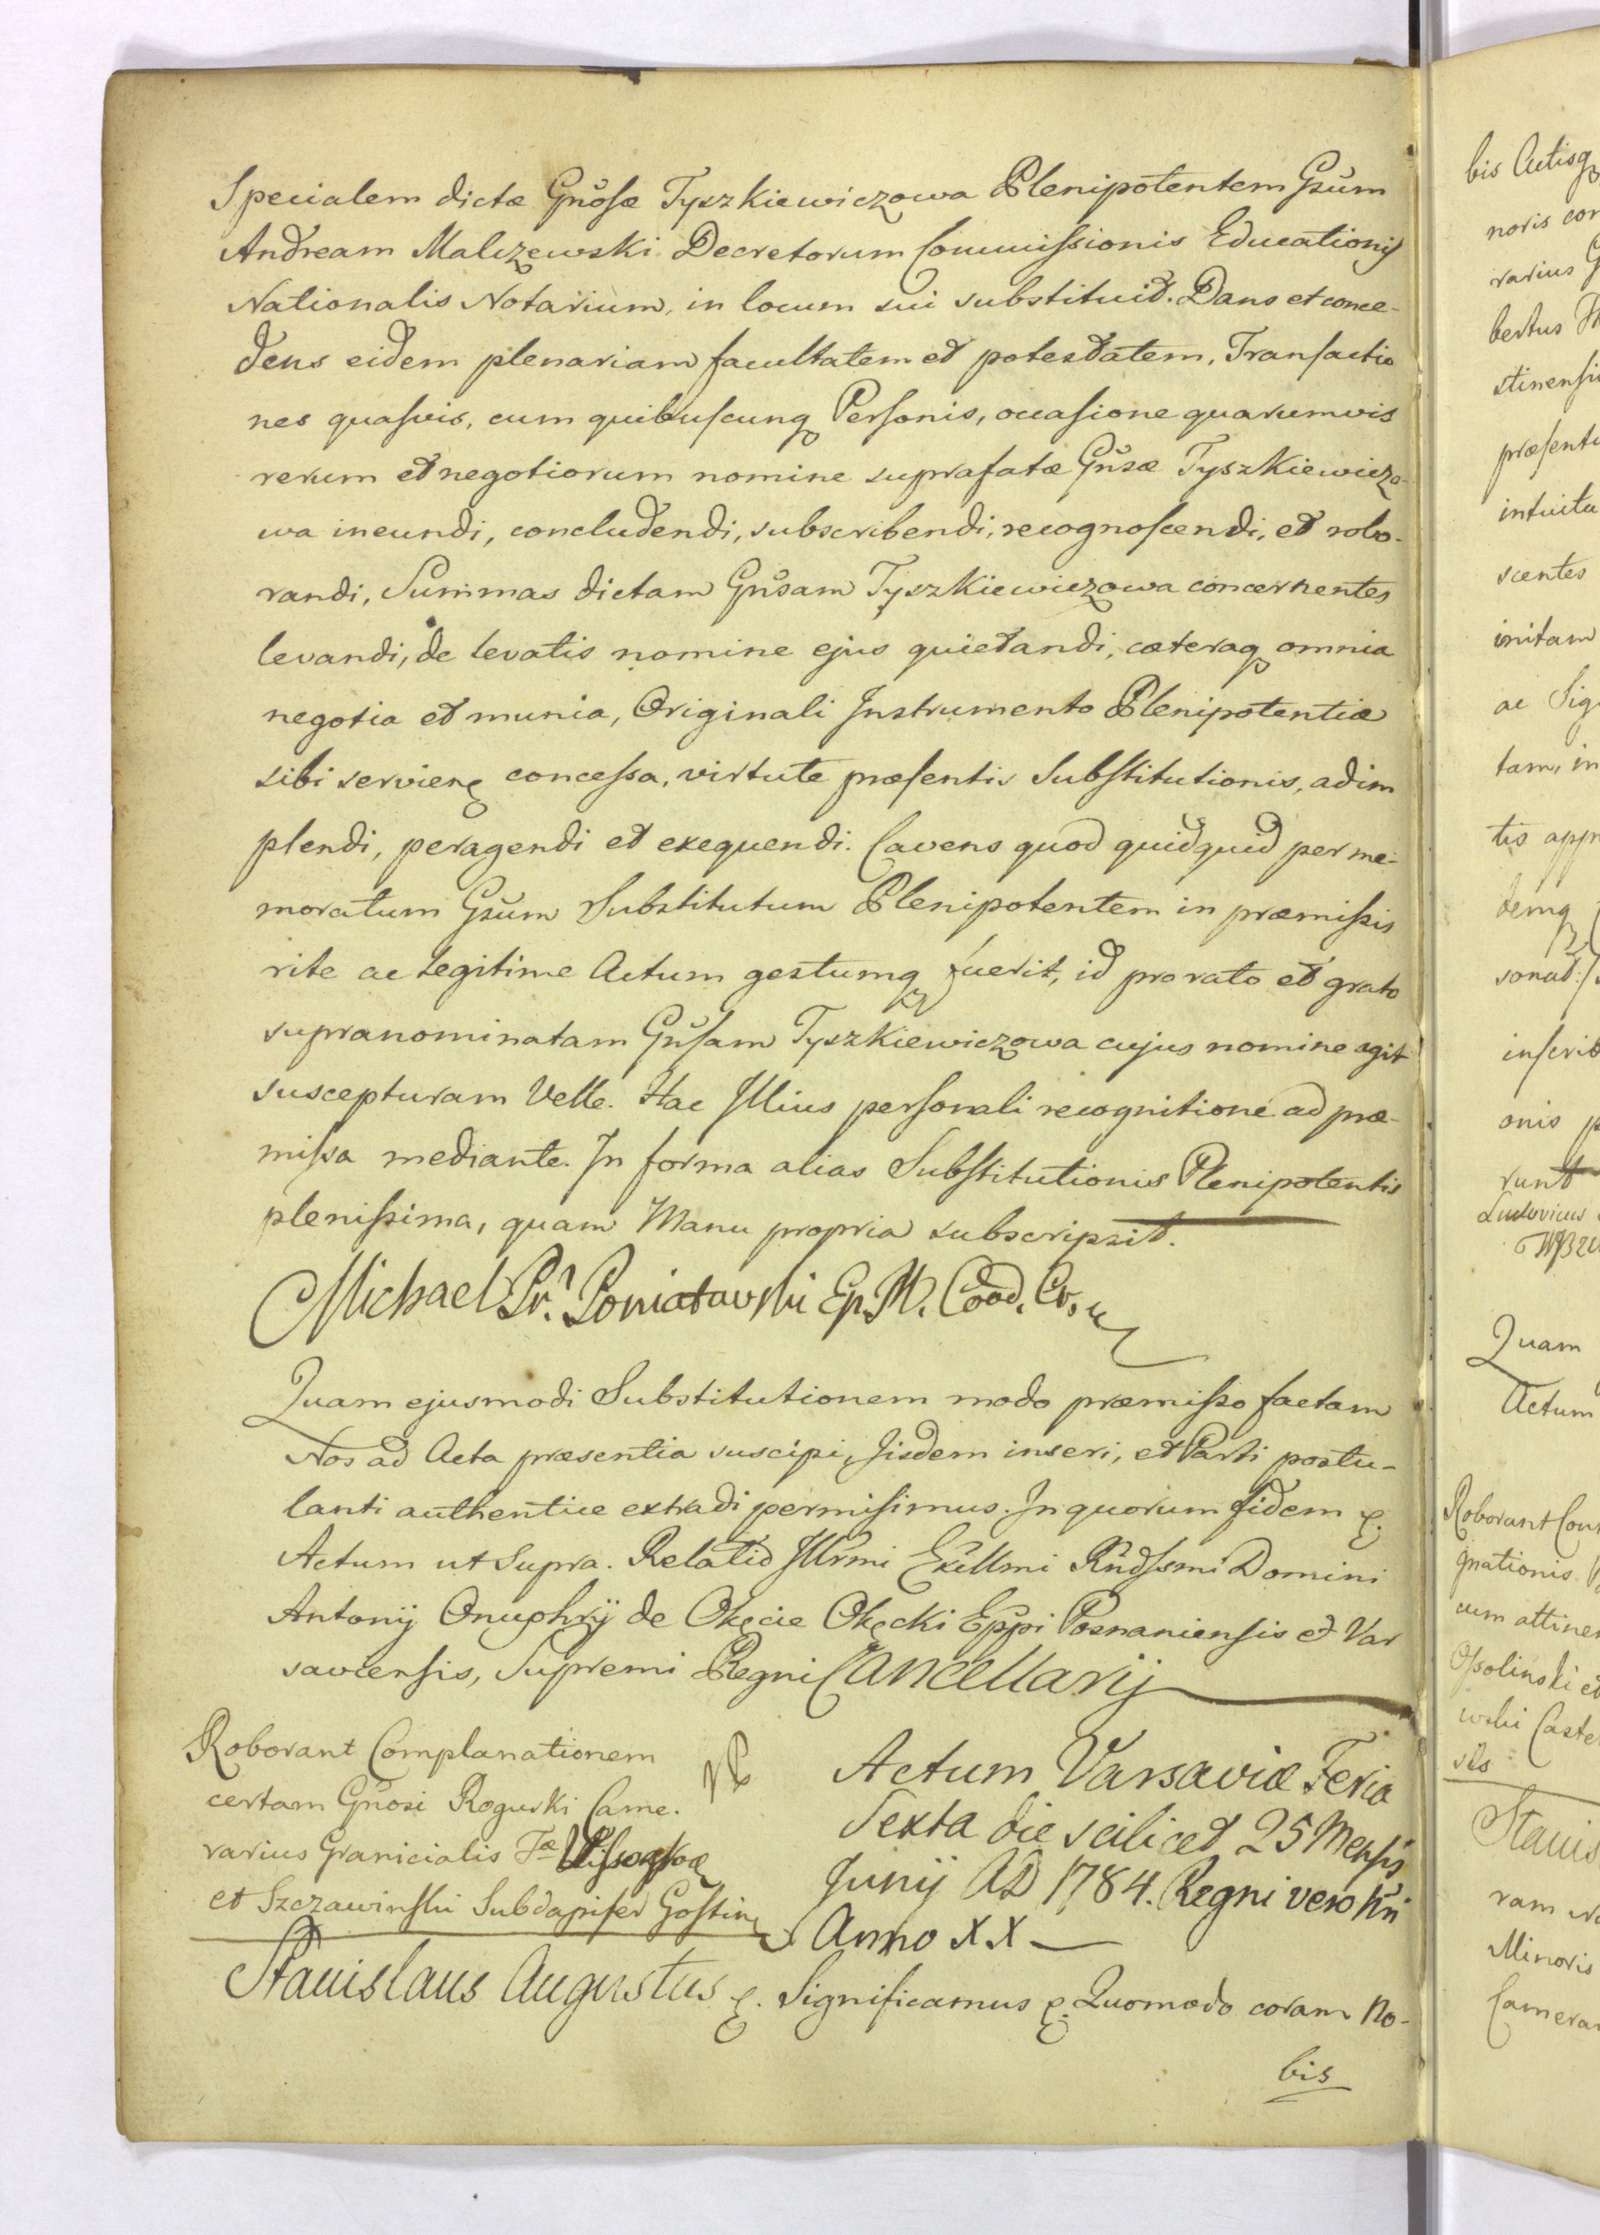 Specialem dictæ Gnosæ Tyszkiewiczowa Plenipotentem Gsum
Andream Malczewski Decretorum Commissionis Educationis
Nationalis Notarium, in locum sui substituit. Dans et conce-
dens eidem plenariam facultatem et potestatem, Transactio
nes quasvis, cum quibuscunq Personis, occasione quarumvis
rerum et negotiorum nomine suprafatæ Gnsæ Tyszkiewiczo-
wa ineundi, concludendi, subscribendi, recognoscendi, et robo-
randi, Summas dictam Gnsam Tyszkiewiczowa concernentes
levandi, de levatis nomine ejus quietandi, cæteraq omnia
negotia et munia, Originali Instrumento Plenipotentiæ
sibi servien concessa, virtute præsentis Substitutionis, adim
plendi, peragendi et exequendi. Cavens quod quidquid per me-
moratum Gsum Substitutum Plenipotentem in præmissis
rite ac legitime Actum gestumq fuerit, id pro rato et grato
supranominatam Gnsam Tyszkiewiczowa cujus nomine agit
suscepturam Velle. Hac Illius personali recognitione ad præ-
missa mediante. In forma alias Substitutionis Plenipotentis
plenissima, quam Manu propria subscripsit.
Michael Pr. Poniatowski Ep. Coad.
Quam ejusmodi Substitutionem modo præmisso factam
Nos ad Acta præsentia suscipi, Iisdem inseri, et Parti postu-
lanti authentice extradi permisimus. In quorum fidem
Actum ut Supra. Relatio Illrmi Excllmi Rndssmi Domini
Antonij Onuphrij de Okęcie Okęcki Eppi Posnaniensis et Var
saviensis, Supremi Regni Cancellarij
Roborant Complanationem
certam Gnosi Rogurski Came.
rarius Granicialis Træ
et Szczawinski Subdapifer Gostin
Actum Varsaviæ Feria
Sexta die scilicet 25 Mensis
Junij AD 1784. Regni vero Nri
Anno XX
Stanislaus Augustus Significamus Quomodo coram No-
bis
bis Actisq
noris con
rarius G
bertus
stinensi
præsent
intuitu
scentes
initam
ac Sig
tam, in
tis app
demq
sonat
inseri
onis p
runt
Ludovicus
Quam
Actum
Roborant Con
gnationis
cum attinen
Ossolinski et
wski Caste
sis
Stanis
ram
Minoris
Camera